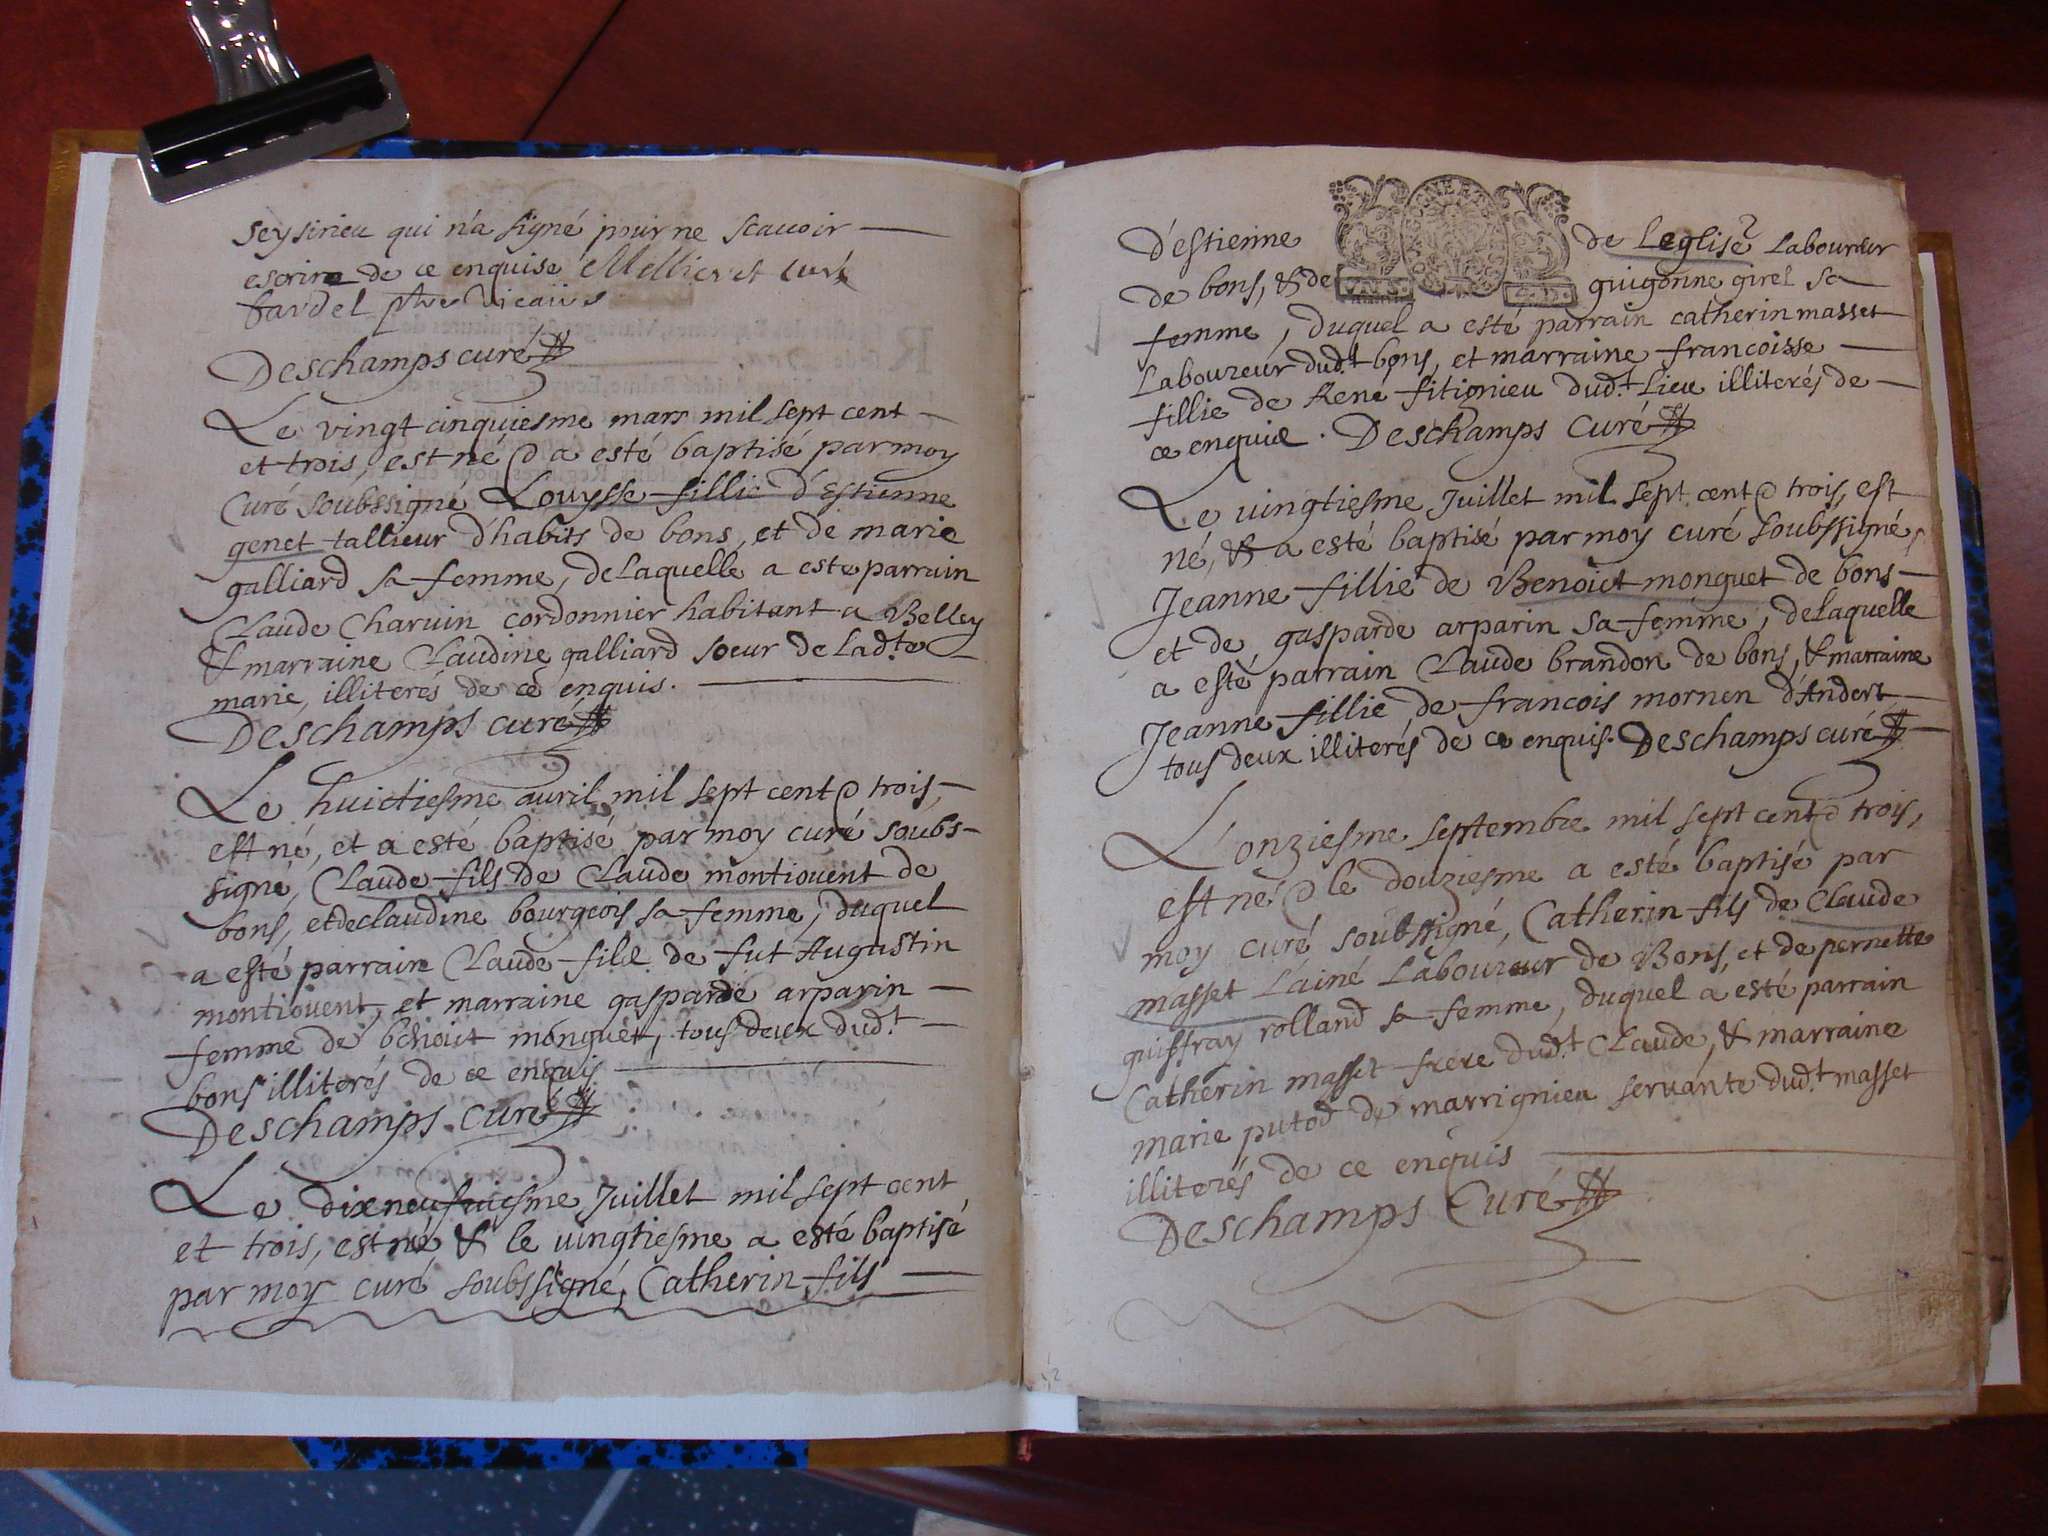 seysirieu qui n'a signé pour ne scauoir —
escrire de ce enquise Mellieret curé
fardel ptre vicaire
Deschamps curé
Le vingt cinquiesme mars mil sept cent —
et trois, est né & a esté baptisé par moy
Curé soubssigné Louysse fillie d'Estienne
genet tallieur d'habits de bons, et de marie
galliard sa femme, de laquelle a este parrain
Claude Charuin cordonnier habitant a Belley
& marraine Claudine galliard soeur de lad.te —
marie, illiterés de ce enquis. —
Deschamps curé
Le huictiesme auril mil sept cent & trois, —
est né, et a esté baptisé par moy curé soubs-
signé, Claude fils de Claude montiouent de
bons, et de claudine bourgeois sa femme, duquel
a esté parrain Claude fils de fut Augustin
montiouent, et marraine gasparde arparin —
femme de benoict monguet, tous deux dud.t —
bons illiterés de ce enquis —
Deschamps Curé
Le dixneufuiesme Juillet mil sept cent
et trois, est né, & le uingtiesme a esté baptisé
par moy curé soubssigné, Catherin fils —
d'estienne de Leglise Laboureur
de bons, & de guigonne girel sa
femme, duquel a esté parrain catherin masset
Laboureur dud.t bons, et marraine francoisse —
fillie de René fitignieu dud.t Lieu illiterés de —
ce enquis. Deschamps Curé
Le uingtiesme Juillet mil sept cent & trois, est
né, & a esté baptisé par moy curé soubssigné,
Jeanne fillie de Benoict monguet de bons —
et de gasparde arparin sa femme, de laquelle
a esté parrain Claude brandon de bons, & marraine
Jeanne fillie de francois mornen d'Andert —
tous deux illiterés de ce enquis. Deschamps curé
L'onziesme septembre mil sept cent & trois,
est né & le douziesme a esté baptisé par
moy curé soubssigné, Catherin fils de Claude
masset L'ainé Laboureur de Bons, et de pernette
guiffray rolland sa femme, duquel a esté parrain
Catherin masset frere dud.t Claude, & marraine
marie putod de marrignieu seruante dud.t masset
illiterés de ce enquis —
Deschamps Curé